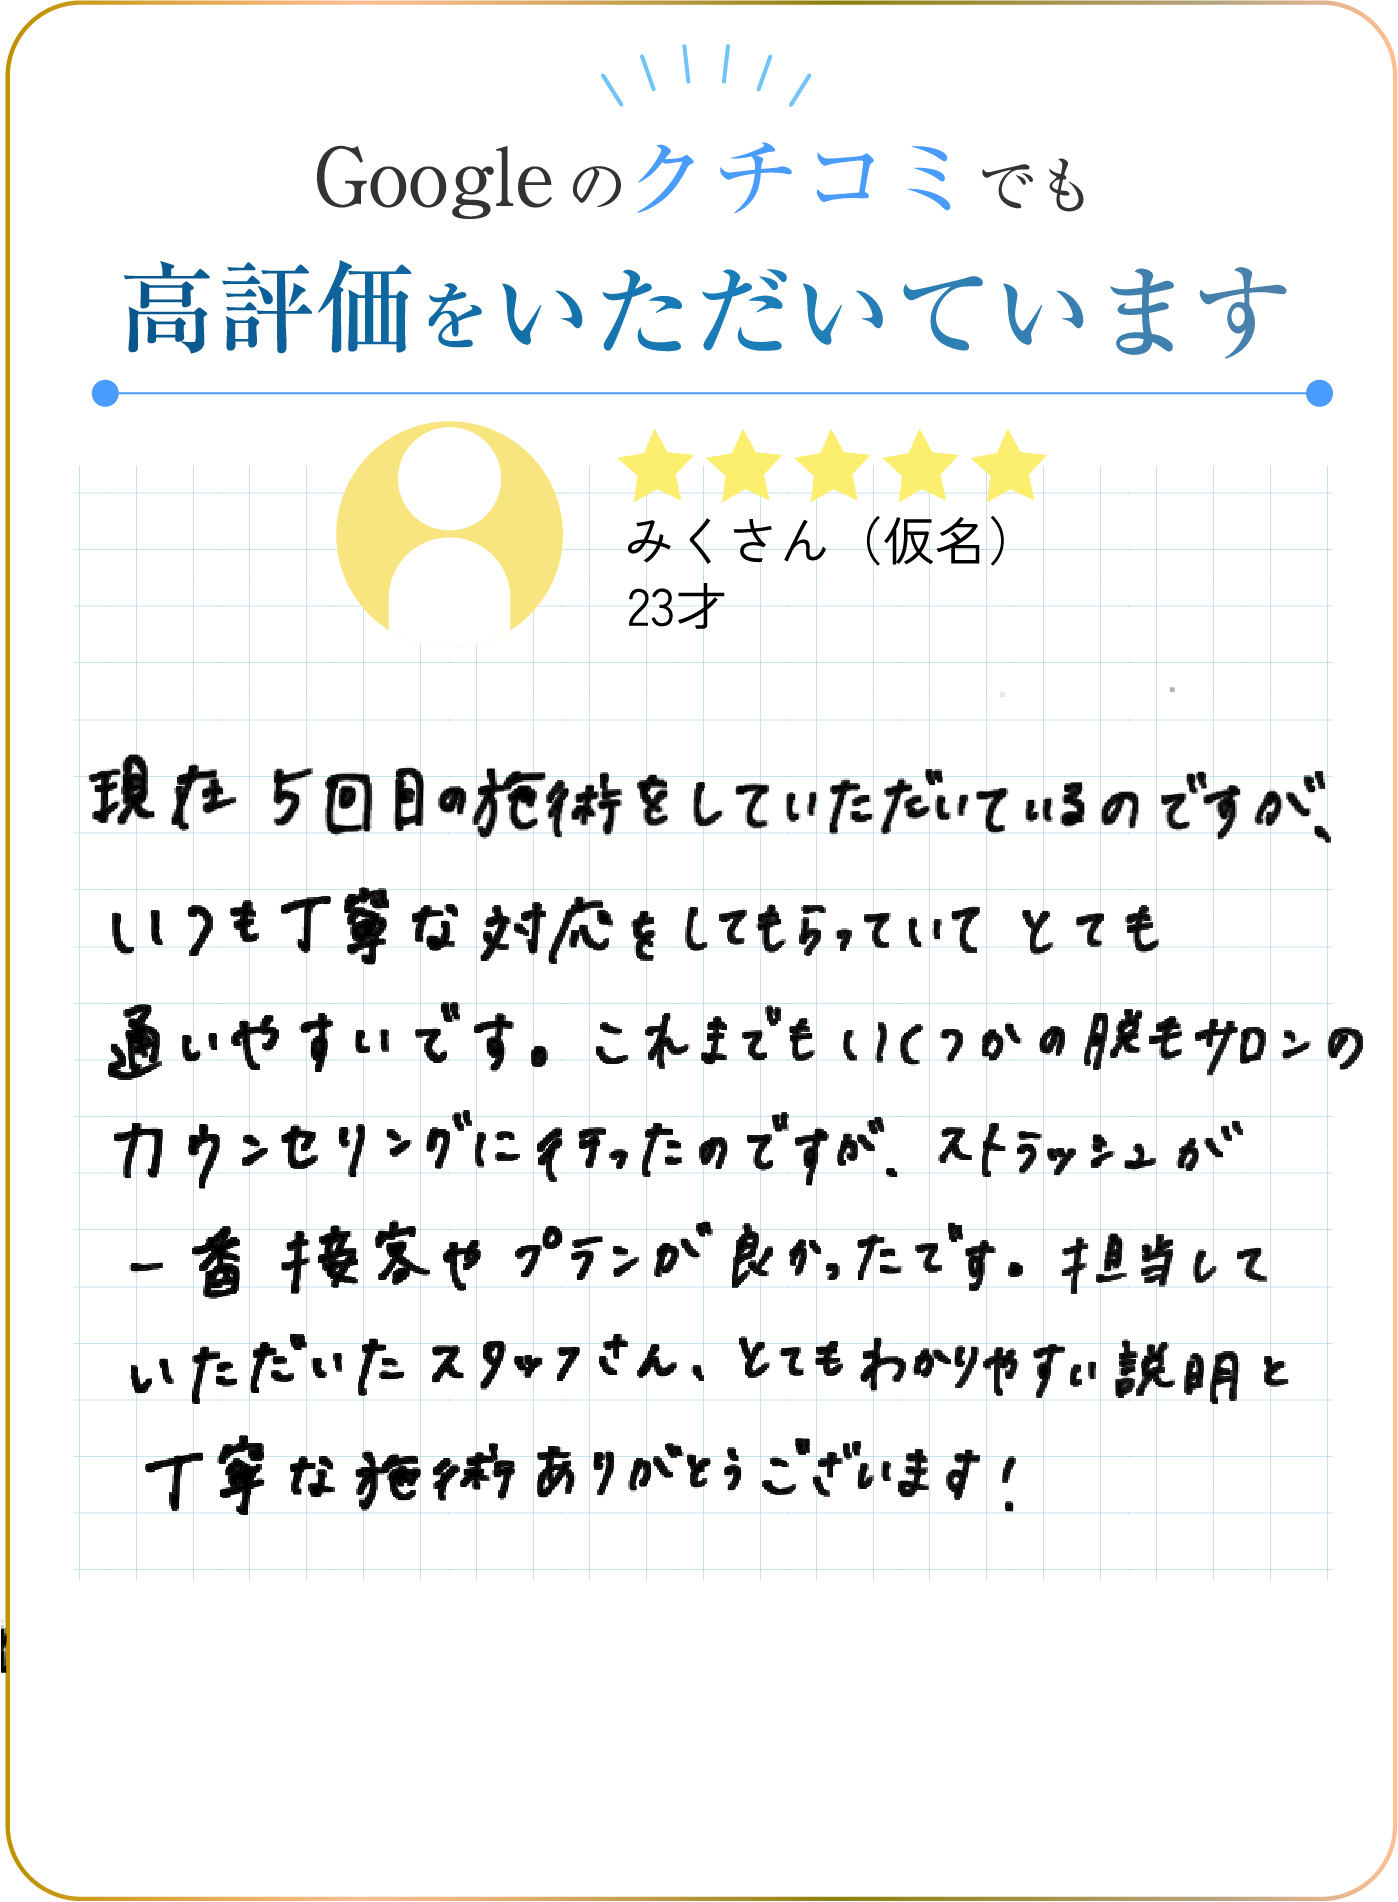 Googleのクチコミでも
高評価をいただいています
みくさん（仮名）
23才
現在5回目の施術をしていただいているのですが、
いつも丁寧な対応をしてもらっていてとても
通いやすいです。これまでもいくつかの脱毛サロンの
カウンセリングに行ったのですが、ストラッシュが
一番接客やプランが良かったです。担当して
いただいたスタッフさん、とてもわかりやすい説明と
丁寧な施術ありがとうございます！